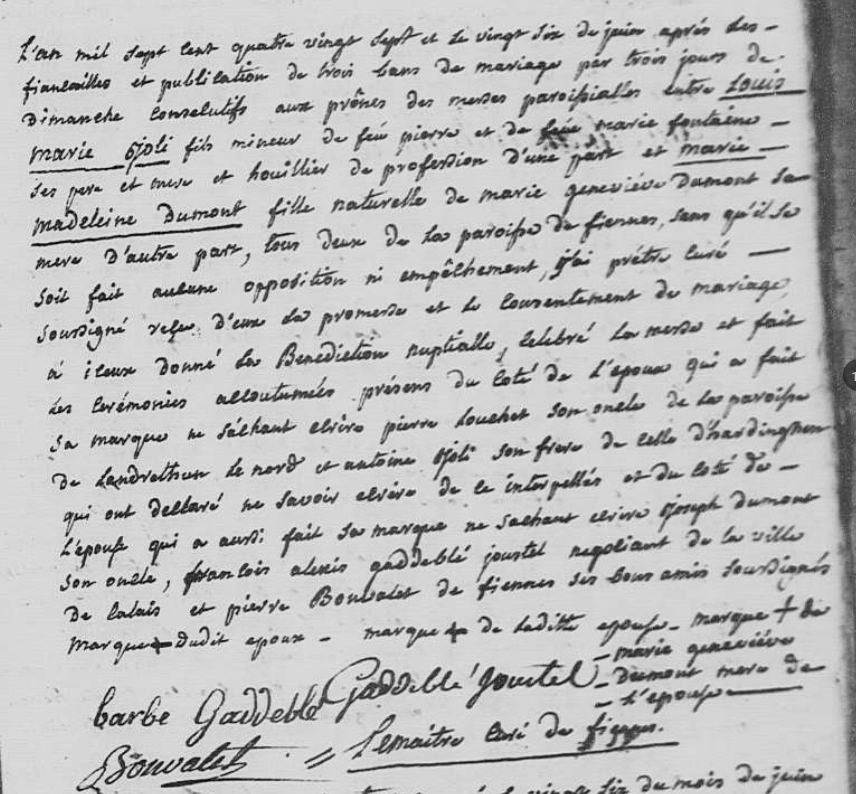 L'an mil sept cent quatre vingt sept et le vingt six de juin après les -
fiancailles et publication de trois bans de mariage par trois jours de
Dimanche consecutifs aux prônes des messes paroissialles entre Louis
marie Joli fils mineur de feu pierre et de feüe marie fontaine -
ses pere et mere et houillier de profession d'une part et marie -
madeleine Dumont fille naturelle de marie geneviéve Dumont sa
mere d'autre part, tous deux de la paroisse de fiennes, sans qu'il se
soit fait aucune opposition ni empêchement, j'ai prétre curé -
soussigné reçu d'eux la promesse et le consentement de mariage,
à iceux donné la Benediction nuptialle, celebré la messe et fait
les cerémonies accoutumées présens du coté de l'epoux qui a fait
sa marque ne sachant ecrire pierre Louchet son oncle de la paroisse
de Landrethun le nord et antoine Joli son frere de celle d'hardinghen
qui ont declaré ne savoir ecrire de ce interpellés et du coté de -
l'epouse qui a aussi fait sa marque ne sachant ecrire Joseph Dumont
son oncle, francois alexis gaddeblé joustel negotiant de la ville
de Calais et pierre Bouvalet de fiennes ses bons amis soussignés
marque + dudit epoux - marque + de laditte epouse - marque + de
- marie geneviéve
- Dumont mere de
- l'epouse -
barbe Gaddeblé Gaddeblé Joustel
Bouvalet = Lemaitre curé de fiennes.
vingt six du mois de juin